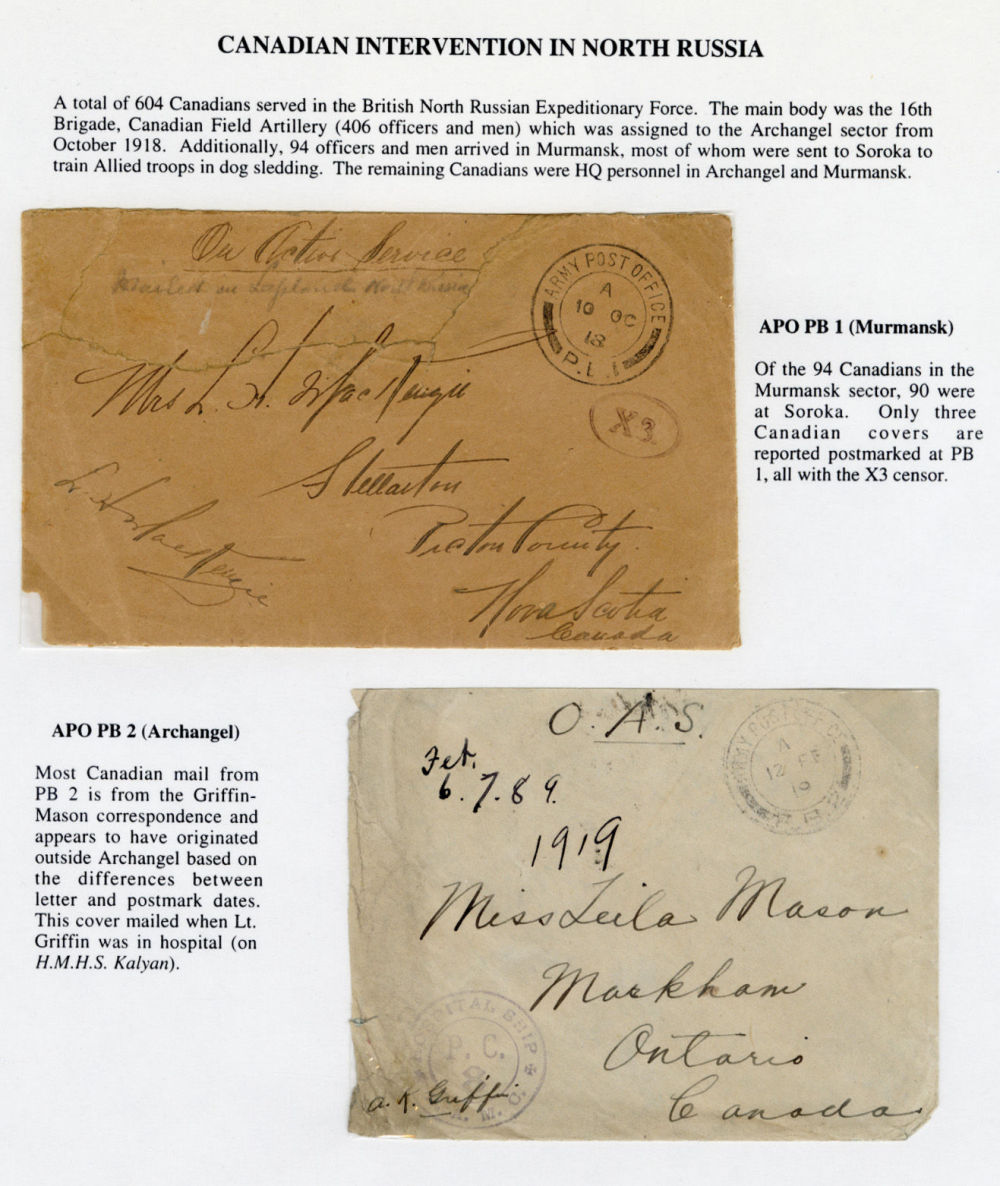 CANADIAN INTERVENTION IN NORTH RUSSIA
A total of 604 Canadians served in the British North Russian Expeditionary Force. The main body was the 16th
Brigade, Canadian Field Artillery (406 officers and men) which was assigned to the Archangel sector from
October 1918. Additionally, 94 officers and men arrived in Murmansk, most of whom were sent to Soroka to
train Allied troops in dog sledding. The remaining Canadians were HQ personnel in Archangel and Murmansk.
On Active Service
Mailed in Lapland North Russia
ARMY POST OFFICE
A
10 OC
18
P.B.1
X3
Mrs L. H. MacKenzie
Stellarton
Pictou County.
Nova Scotia
Canada
L. H. MacKenzie
APO PB 1 (Murmansk)
Of the 94 Canadians in the
Murmansk sector, 90 were
at Soroka. Only three
Canadian covers are
reported postmarked at PB
1, all with the X3 censor.
APO PB 2 (Archangel)
Most Canadian mail from
PB 2 is from the Griffin-
Mason correspondence and
appears to have originated
outside Archangel based on
the differences between
letter and postmark dates.
This cover mailed when Lt.
Griffin was in hospital (on
H.M.H.S. Kalyan).
O. A. S.
Fet.
6. 7. 8 9.
1919
ARMY POST OFFICE
A
12 FE
19
P.B.2
Miss Leila Mason
Markham
Ontario
Canada
HOSPITAL SHIP
P. C.
2
a. K. Griffin